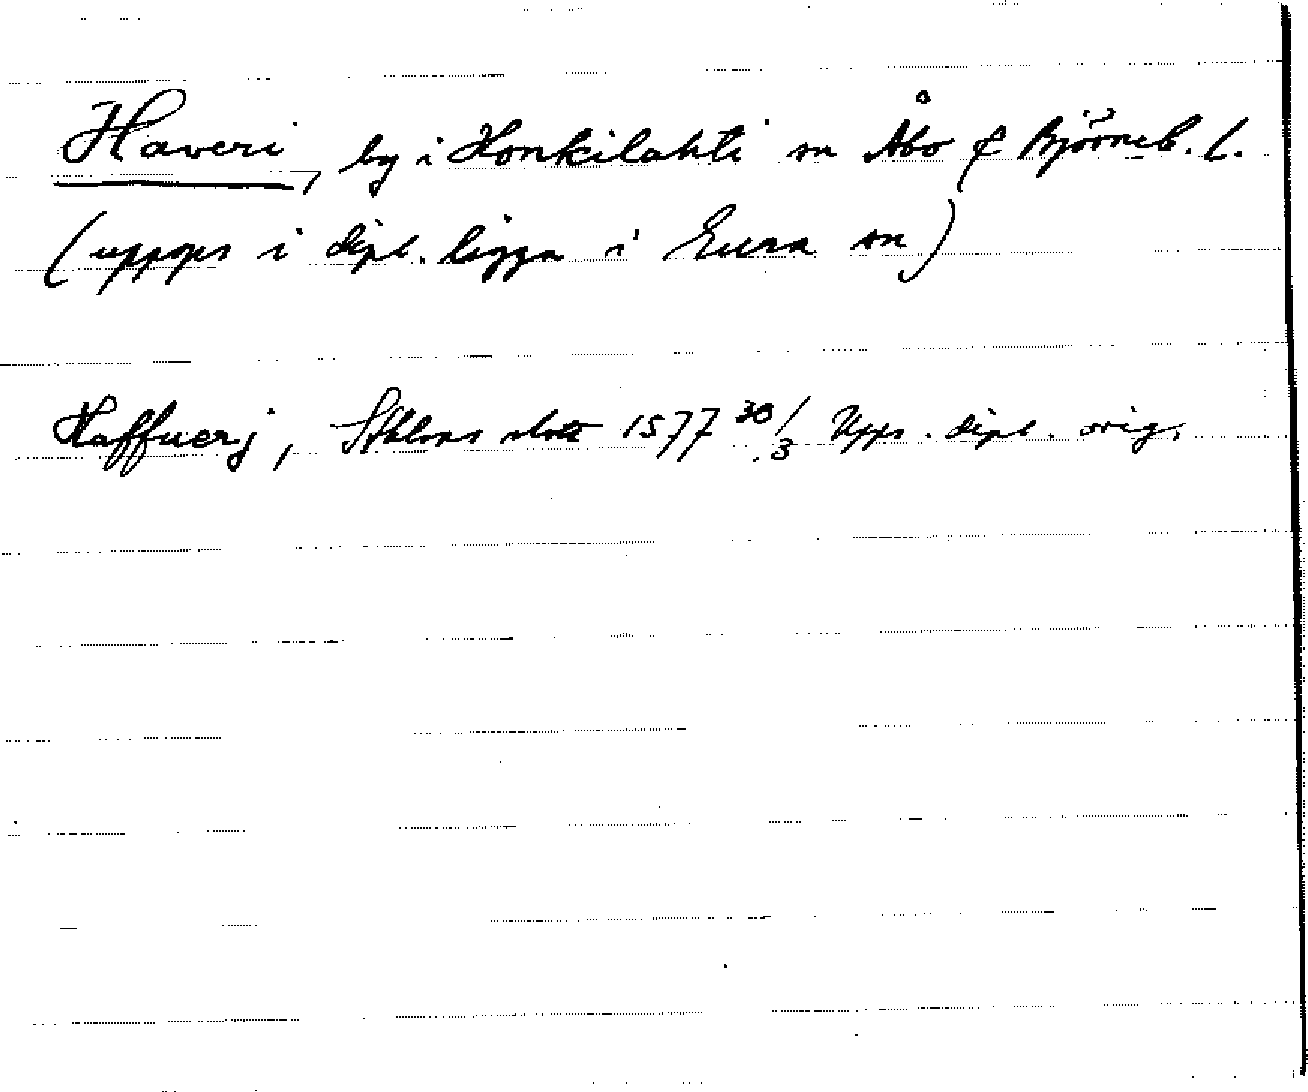 Haveri, by i Honkilahti sn Åbo & Björneb. l.
(uppges i dipl. ligga i Eura sn)
Haffuerj, Sthlms slott 1577 30/3 Upps. dipl. orig.